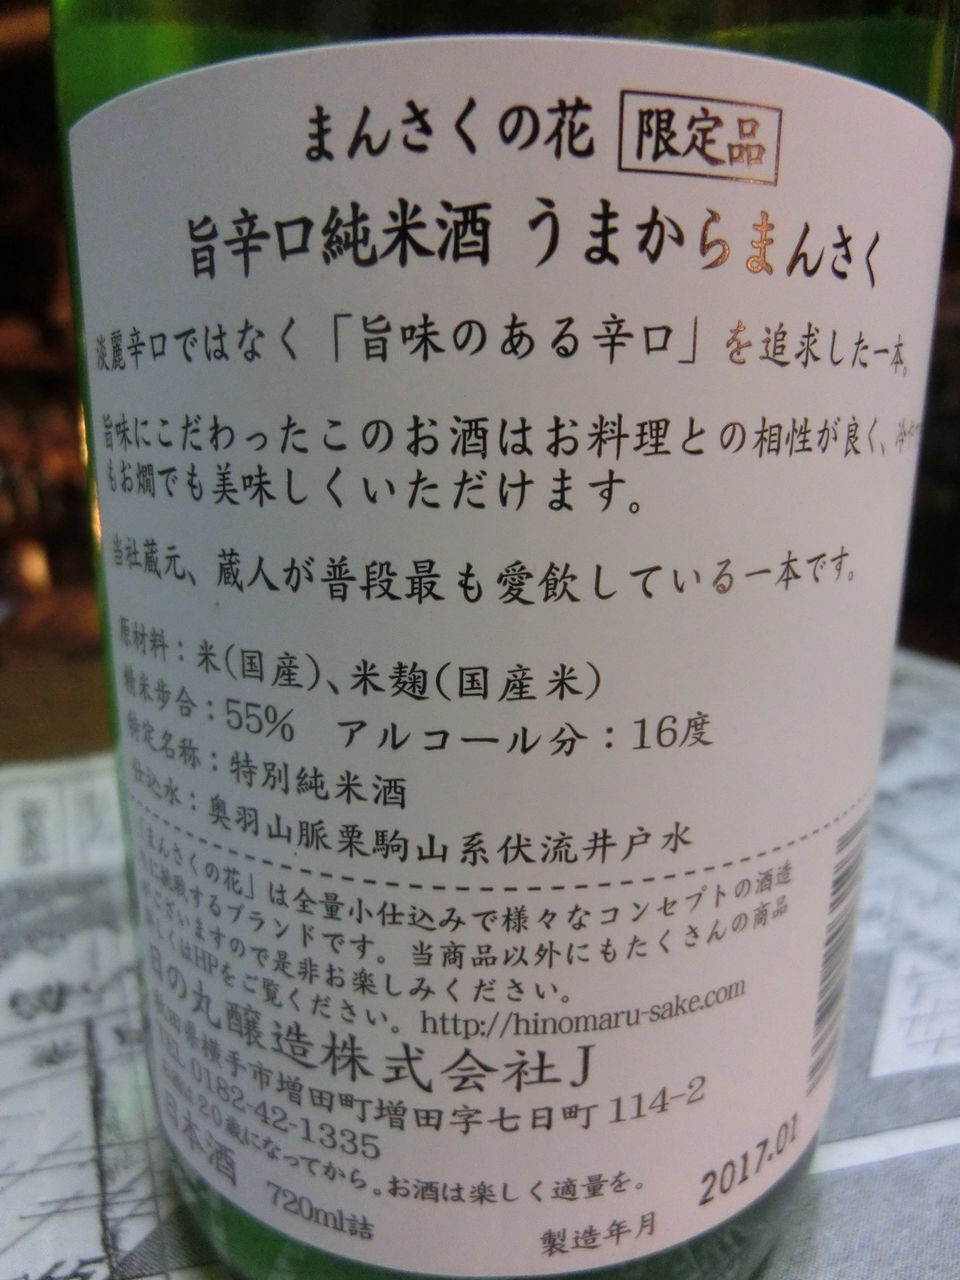 まんさくの花 限定品
旨辛口純米酒 うまからまんさく
淡麗辛口ではなく「旨味のある辛口」を追求した一本。
旨味にこだわったこのお酒はお料理との相性が良く、冷や
もお燗でも美味しくいただけます。
当社蔵元、蔵人が普段最も愛飲している一本です。
原材料：米(国産)、米麹(国産米)
精米歩合：55% アルコール分：16度
特定名称：特別純米酒
仕込水：奥羽山脈栗駒山系伏流井戸水
「まんさくの花」は全量小仕込みで様々なコンセプトの酒造
りに挑戦するブランドです。当商品以外にもたくさんの商品
がございますので是非お楽しみください。
詳しくはHPをご覧ください。http://hinomaru-sake.com
日の丸醸造株式会社J
秋田県横手市増田町増田字七日町114-2
TEL 0182-42-1335
お酒は20歳になってから。お酒は楽しく適量を。
日本酒 720ml詰 製造年月 2017.01